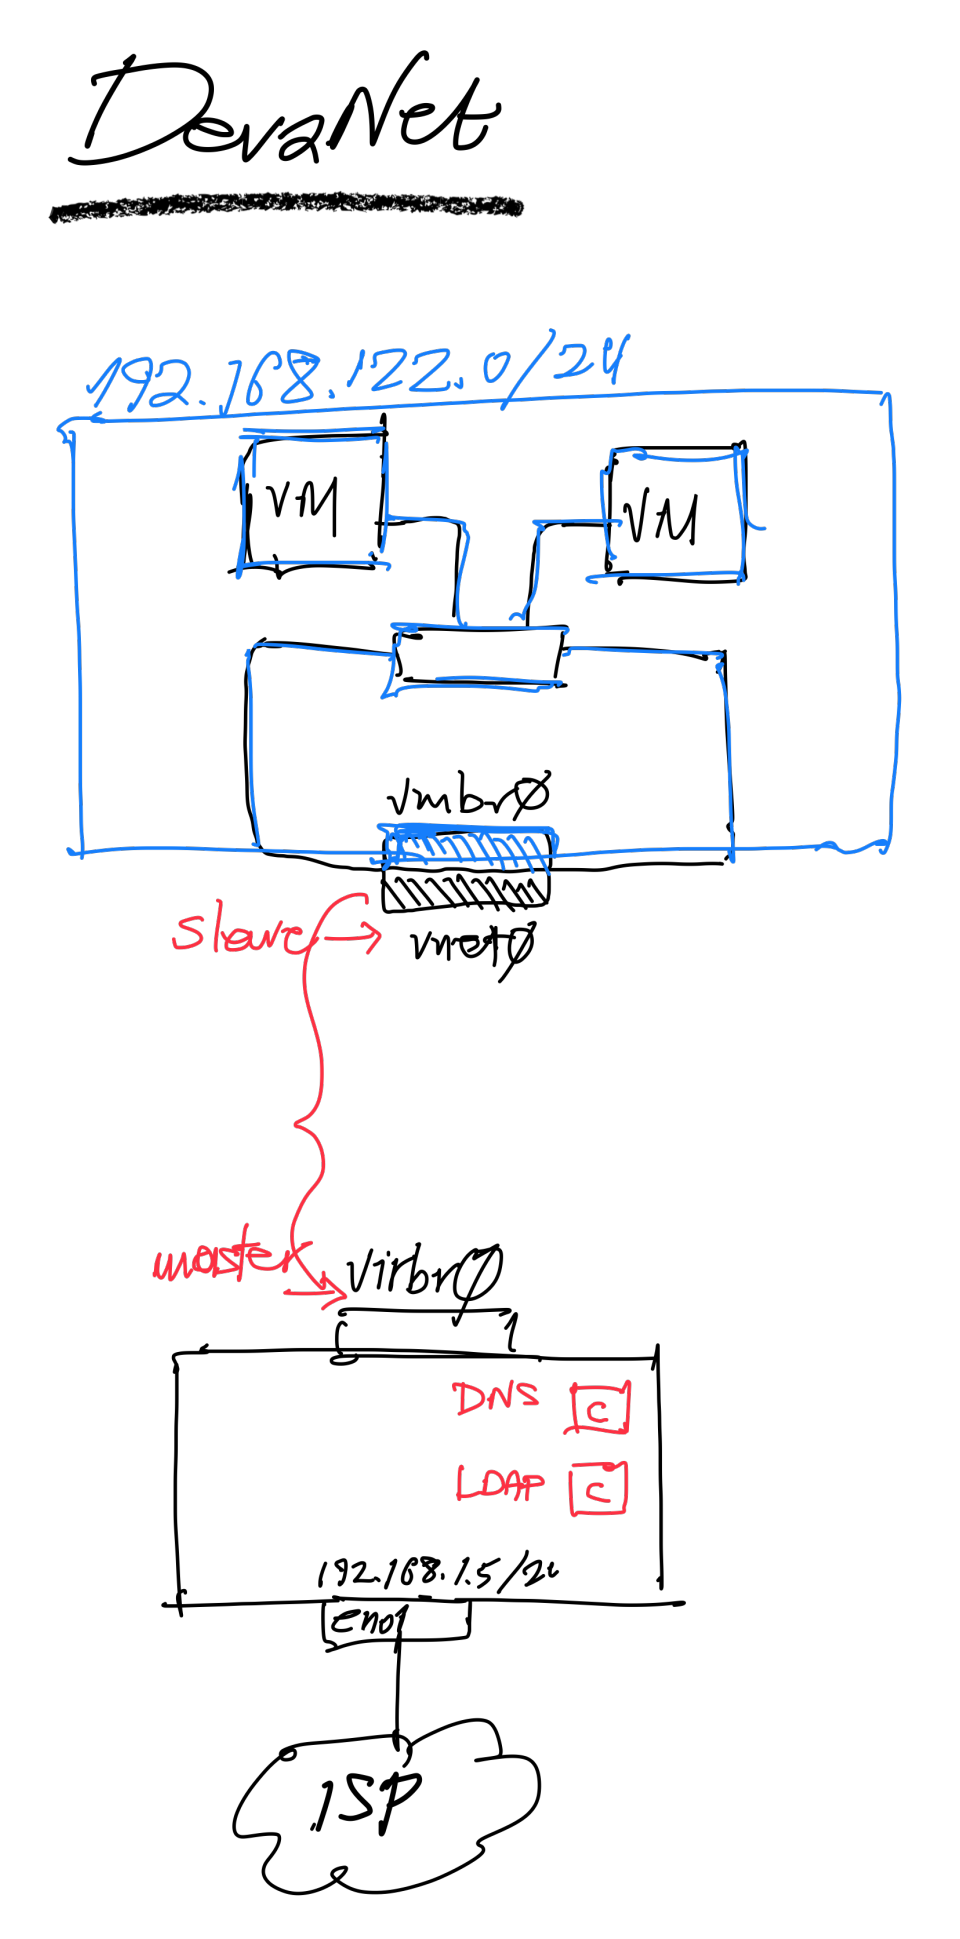 DevaNet
192.168.122.0/24
VM
VM
vmbr0
slave
vnet0
master
virbr0
DNS
C
LDAP
C
192.168.1.5/24
eno1
ISP